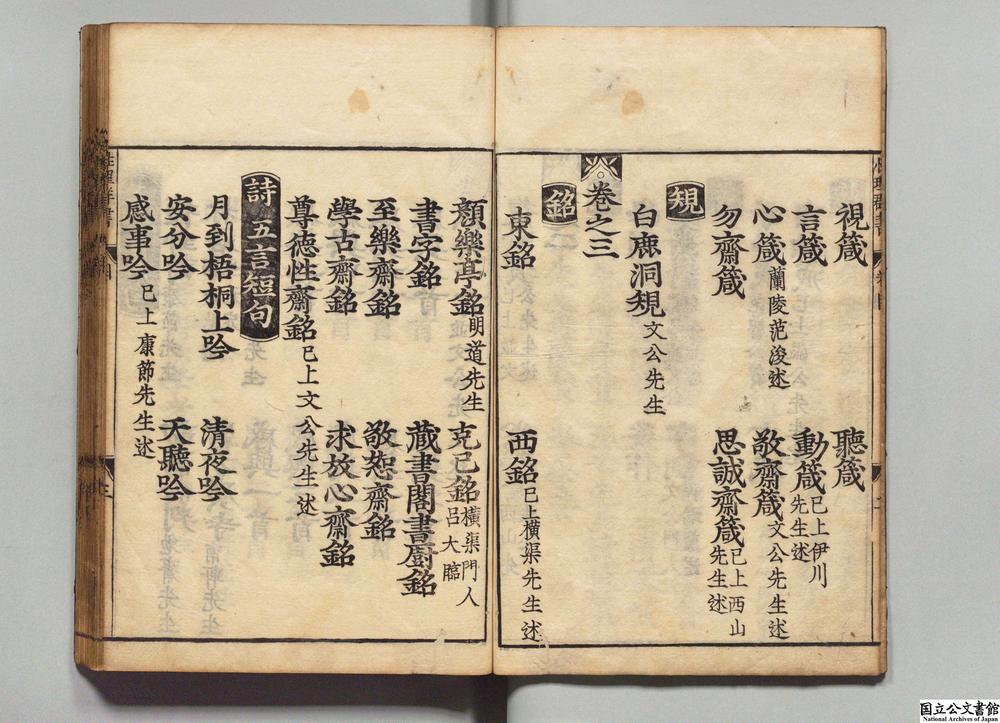 視箴 聽箴
言箴 動箴 已上伊川先生述
心箴 蘭陵范浚述 敬齋箴 文公先生述
勿齋箴 思誠齋箴 已上西山先生述
規
白鹿洞規 文公先生
卷之三
銘
東銘 西銘 已上橫渠先生述
顏樂亭銘 明道先生 克己銘 橫渠門人呂大臨
書字銘 藏書閣書廚銘
至樂齋銘 敬恕齋銘
學古齋銘 求放心齋銘
尊德性齋銘 已上文公先生述
詩 五言短句
月到梧桐上吟 清夜吟
安分吟 天聽吟
感事吟 已上康節先生述
国立公文書館
National Archives of Japan